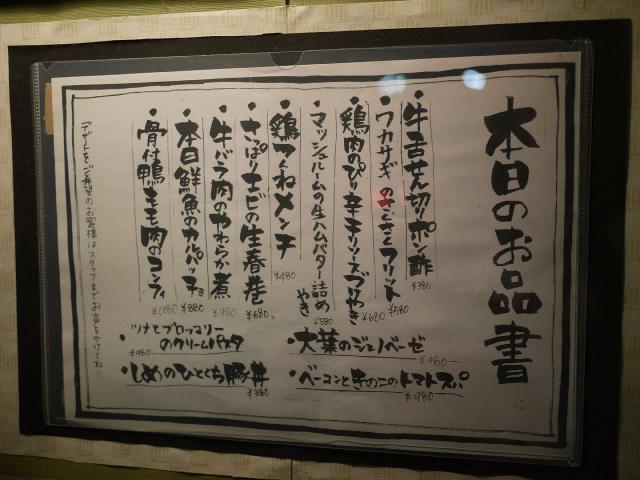 本日のお品書
・牛舌せん切りポン酢
¥380
・ワカサギの
フリット
¥580
・鶏肉のぴり辛チリソースづけやき
¥680
・マッシュルームの生ハムバター詰め
やき
¥580
・鶏つくねメンチ
¥480
・さっぱり生エビの生春巻
¥680
・牛バラ肉のやわらか煮
¥980
・本日鮮魚のカルパッチョ
¥880
・骨付鴨もも肉のコンフィ
・大葉のジェノベーゼ
¥980
・ベーコンときのこのトマトスパ
¥980
・ツナとブロッコリー
のクリームパスタ
¥980
・しめのひとくち豚丼
¥380
デザートをご希望のお客様はスタッフまでお声をかけてね!!